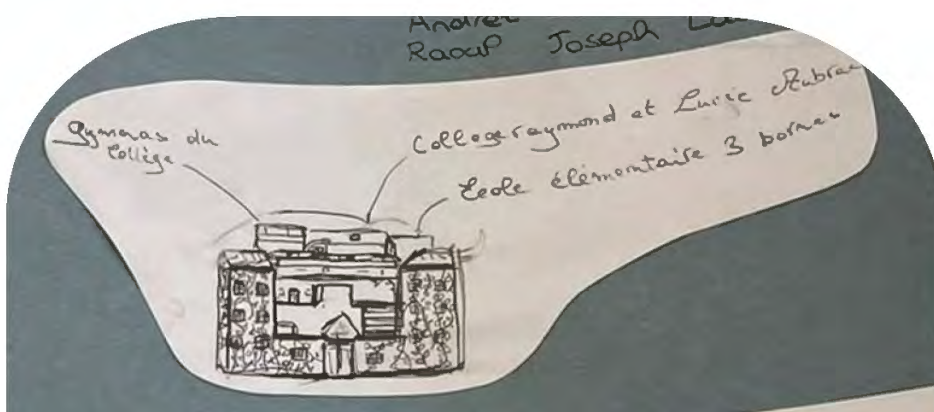 Andrée
Raoul Joseph
Gymnas du
Collège
College raymond et Lucie Aubrac
Ecole élémentaire 3 bornes